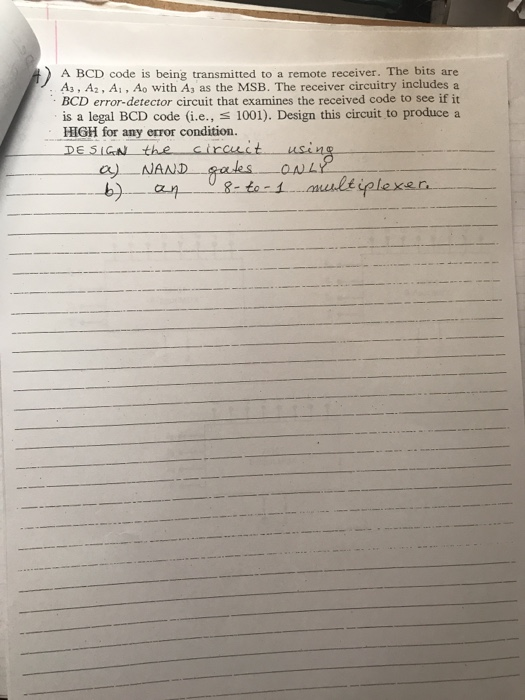 4) A BCD code is being transmitted to a remote receiver. The bits are
A₃, A₂, A₁, A₀ with A₃ as the MSB. The receiver circuitry includes a
BCD error-detector circuit that examines the received code to see if it
is a legal BCD code (i.e., ≤ 1001). Design this circuit to produce a
HIGH for any error condition.
DESIGN the circuit using
a) NAND gates ONLY
b) an 8-to-1 multiplexer.